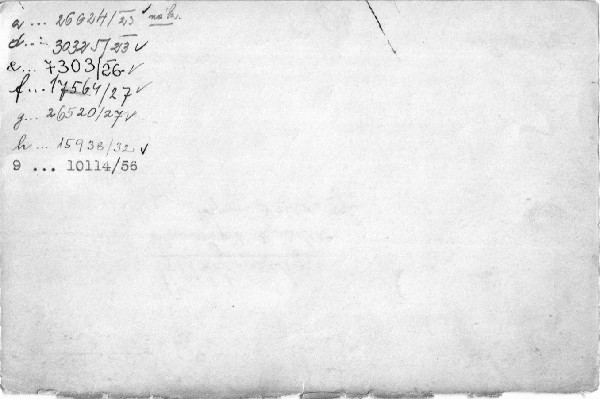 a ... 26924/23 ✓ náh.
d ... 30325/23 ✓
e... 7303/26 ✓
f...17564/27 ✓
g... 26520/27 ✓
h ... 15938/32 ✓
9 ... 10114/56